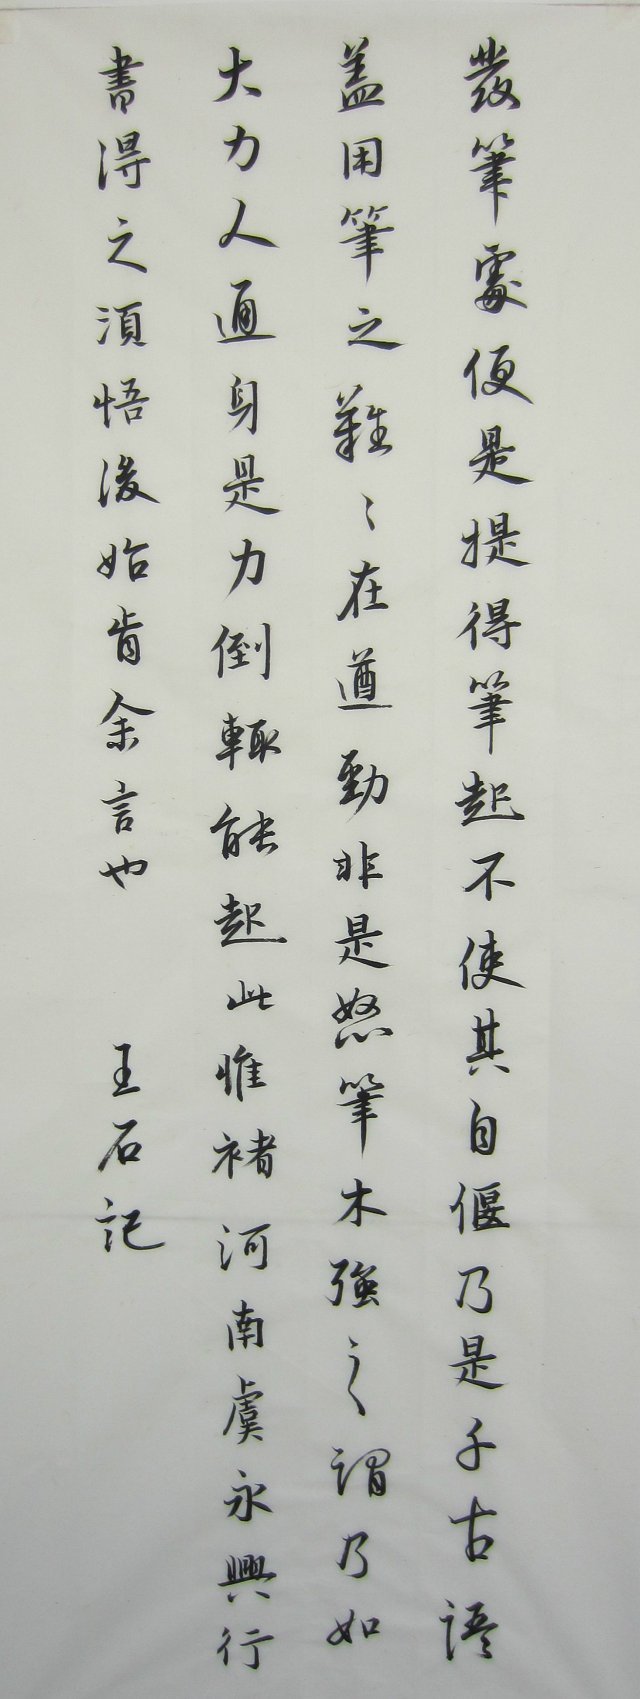 發筆處便是提得筆起不使其自偃乃是千古語
蓋用筆之難〻在遒勁非是怒筆木強之謂乃如
大力人通身是力倒輒能起此惟褚河南虞永興行
書得之須悟後始肯余言也 王石記